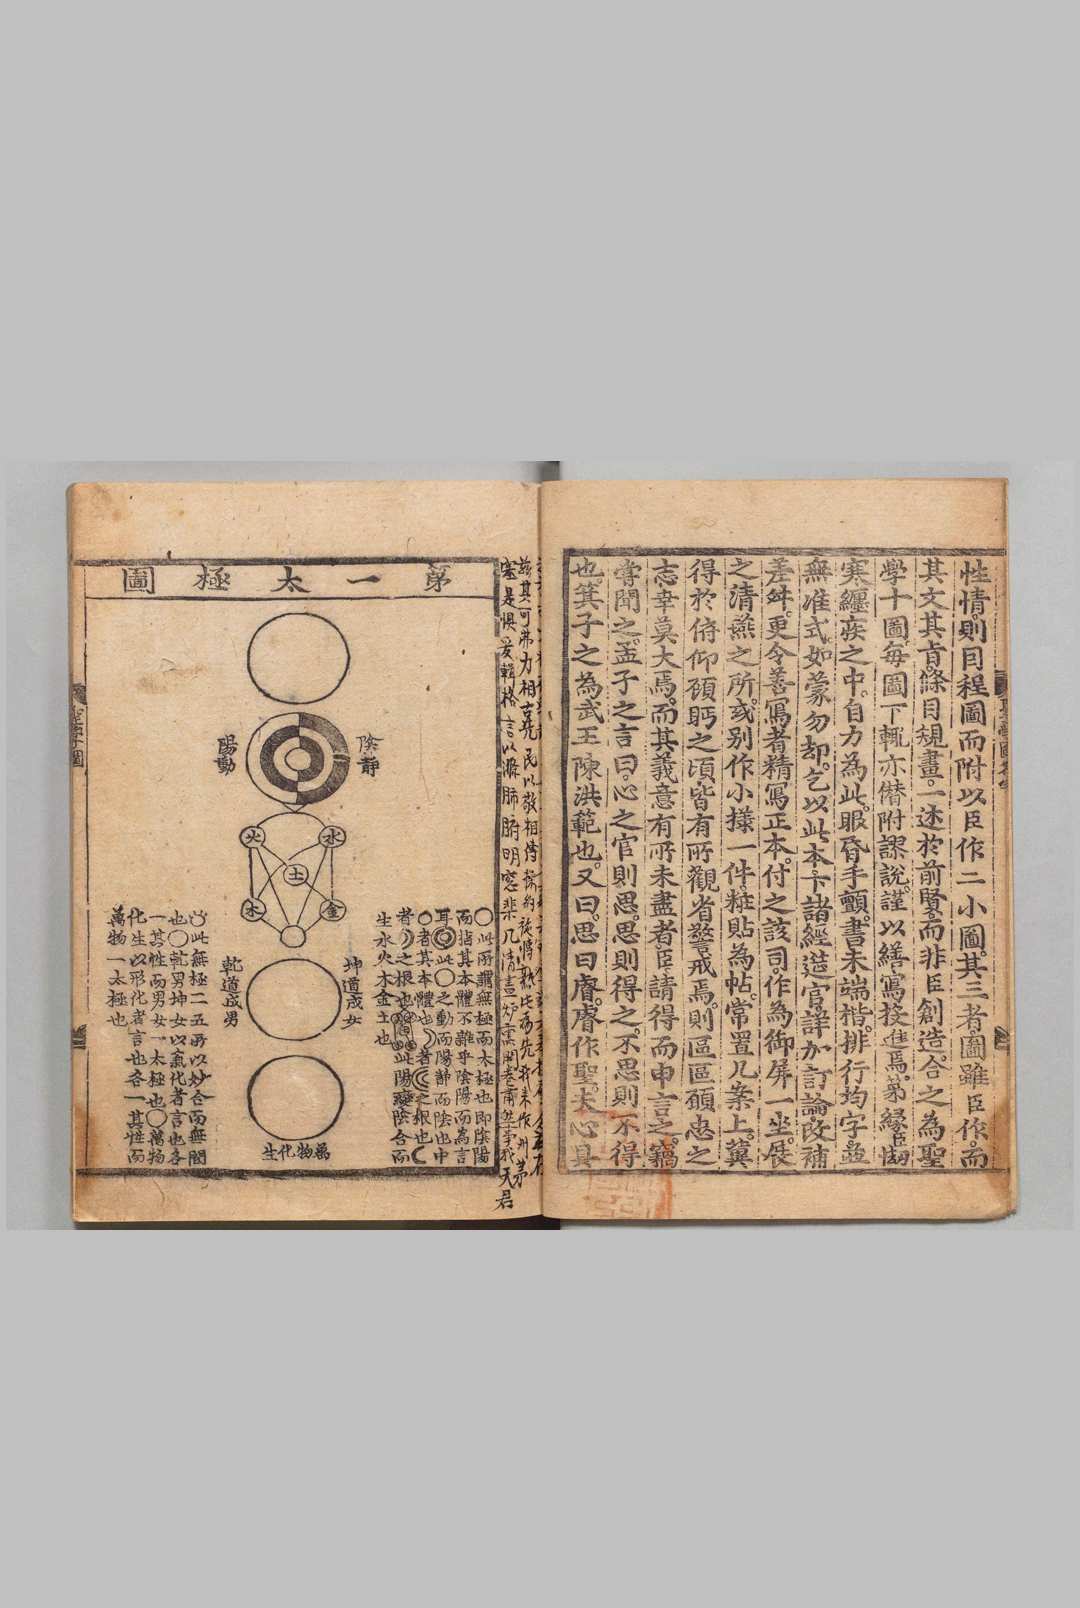 性情。則因程圖而附以臣作二小圖。其三者。圖雖臣作。而
其文其旨。條目規畫。一述於前賢。而非臣創造。合之為聖
學十圖。每圖下。輒亦僭附謬說。謹以繕寫投進焉。第緣臣㤼
寒纏疾之中。自力為此。眼昏手顫。書未端楷。排行均字。並
無准式。如蒙勿却。乞以此本。下諸經筵官。詳加訂論。改補
差舛。更令善寫者精寫正本。付之該司。作為御屏一坐。展
之清燕之所。或別作小㨾一件。粧貼為帖。常置几案上。冀
得於俯仰顧眄之頃。皆有所觀省警戒焉。則區區願忠之
志。幸莫大焉。而其義意有所未盡者。臣請得而申言之。竊
嘗聞之。孟子之言曰。心之官則思。思則得之。不思則不得
也。箕子之為武王陳洪範也。又曰。思曰睿。睿作聖。夫心具
第一太極圖
陰靜
陽動
水
火
土
金
木
坤道成女
乾道成男
萬物化生
○此所謂無極而太極也即陰陽
而指其本體不雜乎陰陽而為言
耳◎此○之動而陽靜而陰也中
○者其本體也者之根也
者之根也此陽變陰合而
生水火木金土也
此無極二五所以妙合而無間
也○乾男坤女以氣化者言也各
一其性而男女一太極也○萬物
化生以形化者言也各一其性而
萬物一太極也
聖學十圖